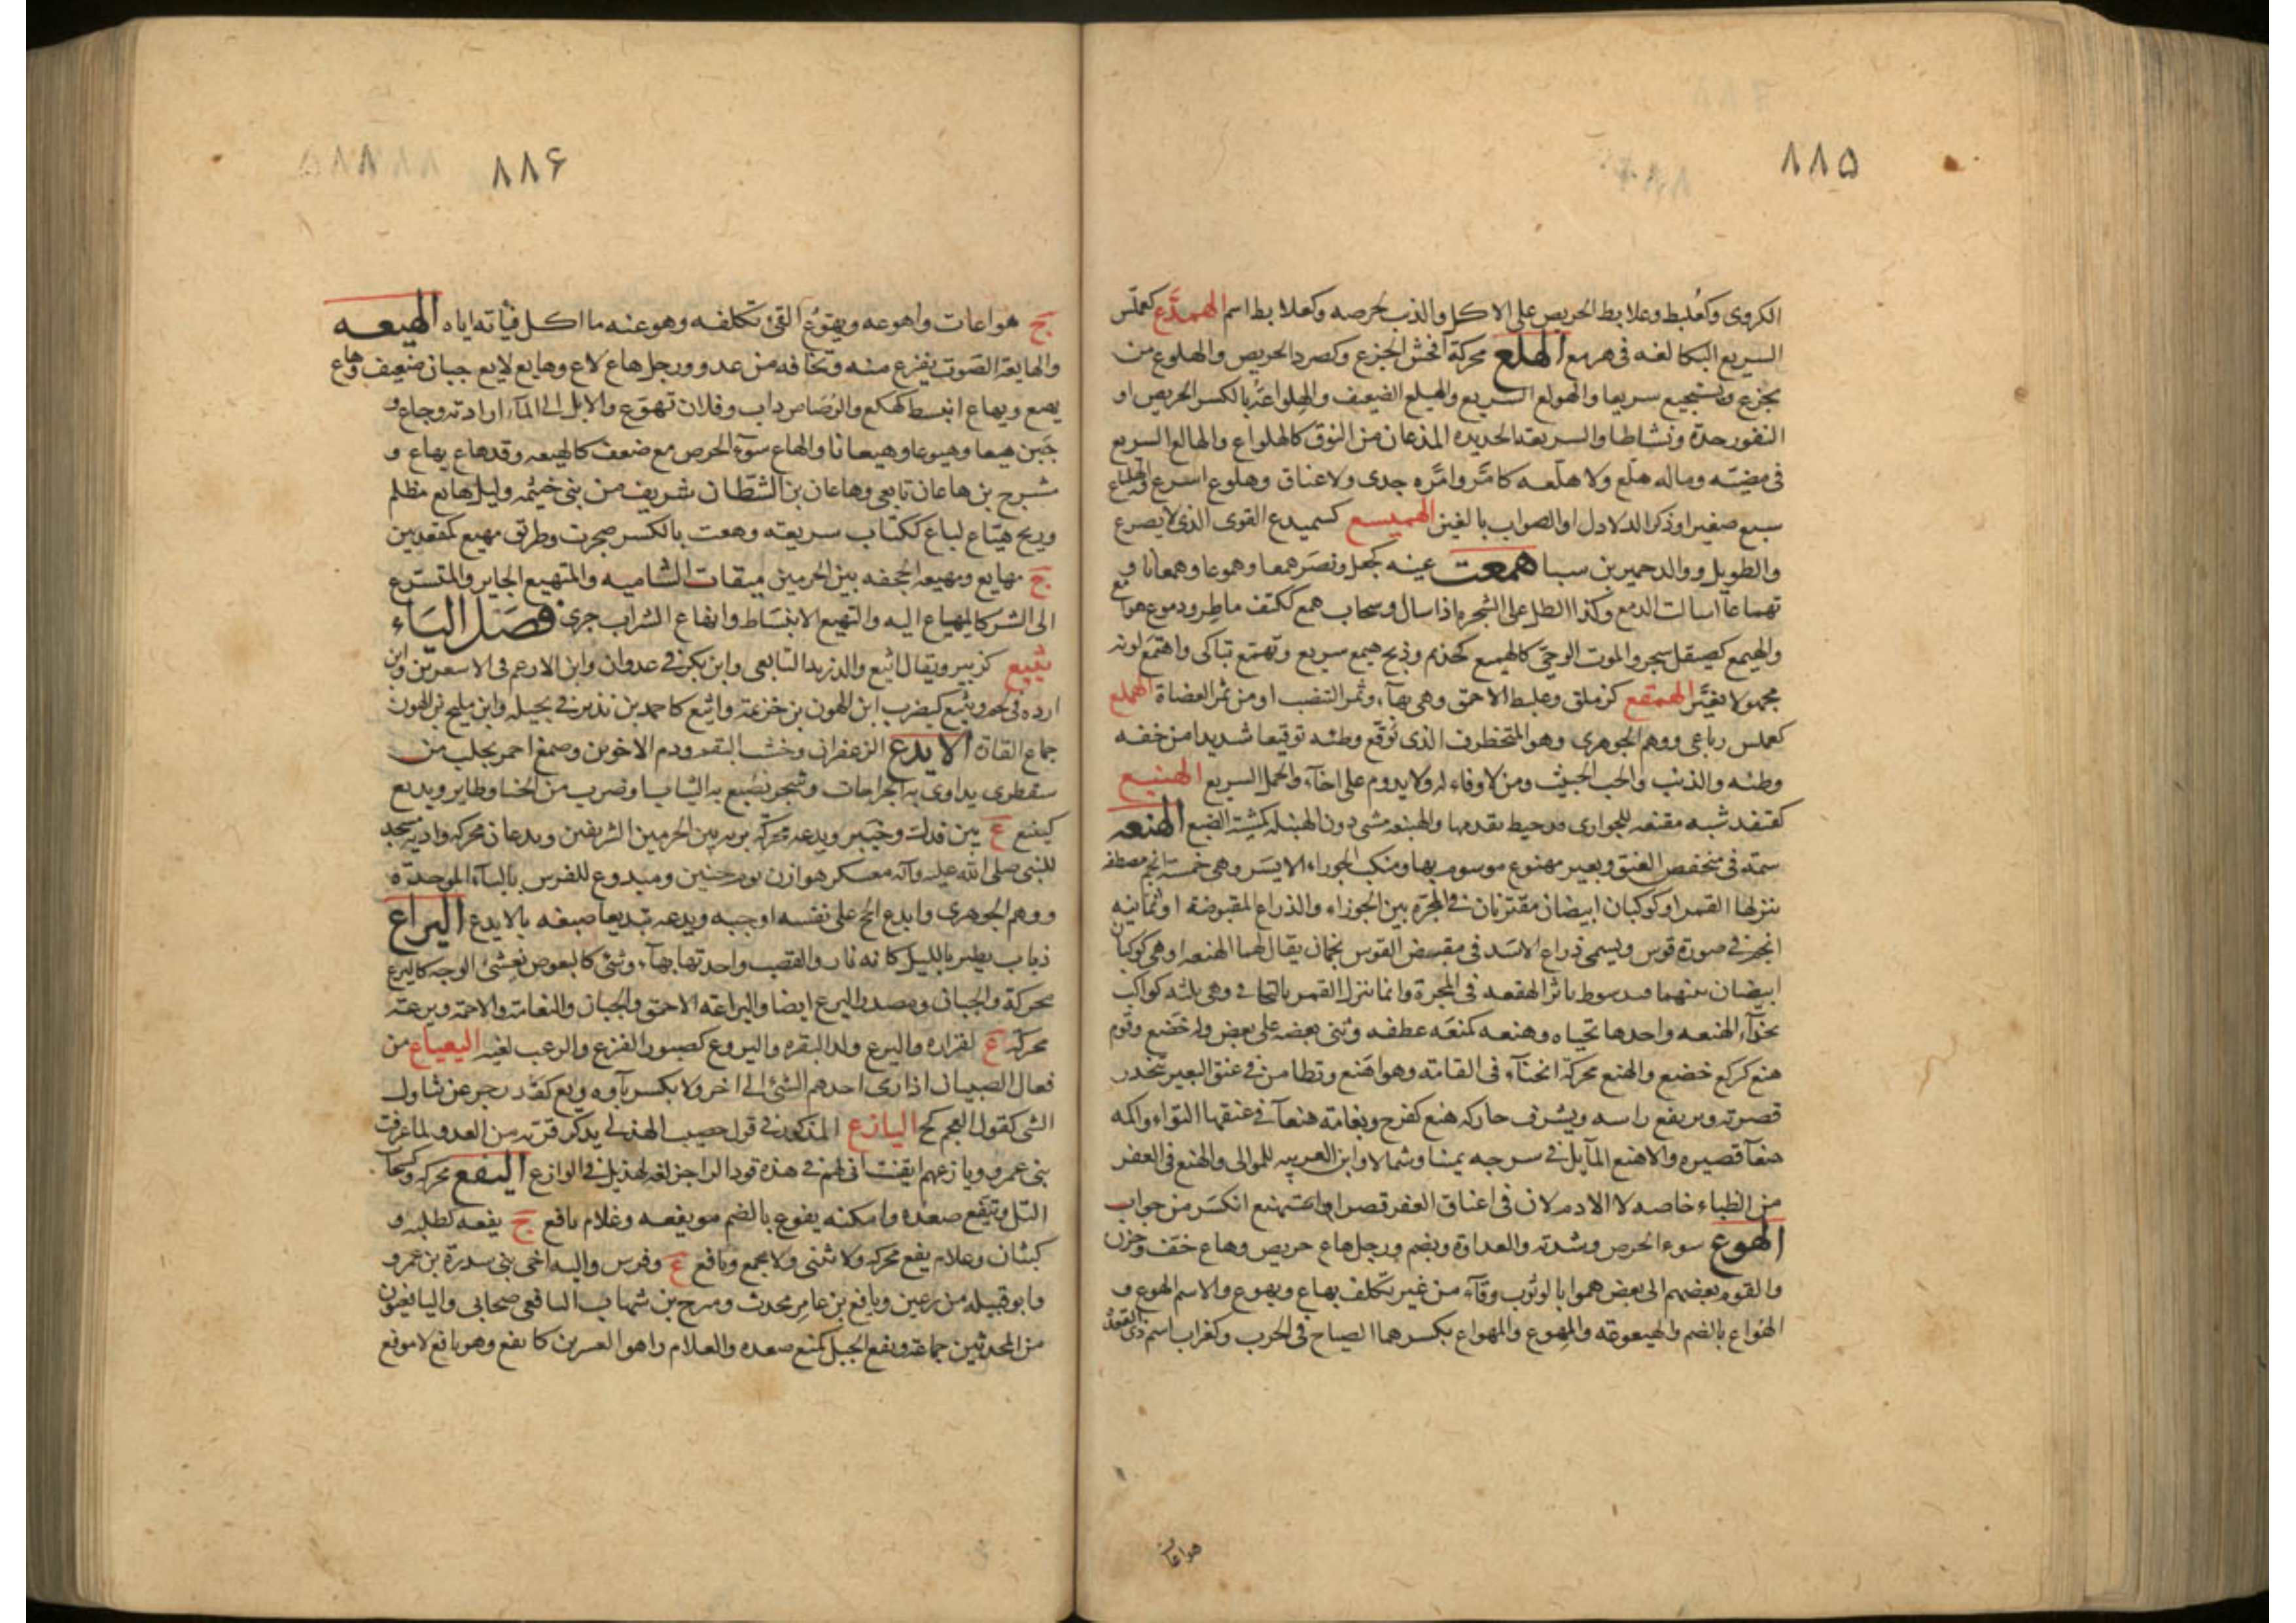 ٨٨۵
الكروى وكعُلبط وعلابط الحريص على الاكل والذيب لحرصه وكعلابط اسم الهمذّع كعملّس
السريع البكا لغه فى هرمع الهلع محركة افحش الجزع وكصرد الحريص والهلوع من
يجزع ويستجيع سريعا والهولع السريع والهيلع الضعيف والهلواعة بالكسر الحريص او
النفور حدّة ونشاطا والسريعة الحديده المذعان من النوق كالهلواع والهالع السريع
فى مضيّه وماله هلّع ولا هلّعه كامّر وامّره جدى ولا عناق وهلوع اسرع
سبع صغير او ذكر الدلادل او الصواب بالغين الهميسع كسميدع القوى الذى لا يصرع
والطويل ووالد حمير بن سبا همعت عينه كجعل ونصَر همعا وهموعا وهمعانا و
تهماعا اسالت الدمع وكذا الطل على الشجره اذا سال وسحاب همع ككتف ماطر ودموع هوامع
والهيمع كصيقل شجر والموت الوحىّ كالهميع كحذيم وذبح هيمع سريع وتهمّع تباكى واهتُمع لونه
مجهولا تغيّر الهمقع كزملق وعلبط الاحمق وهى بهاء وثمر التنضب او من ثمر العضاة الهملع
كعملس رباعى ووهم الجوهرى وهو المتخطرف الذى توقّع وطئه توقيعا شديدا من خفه
وطئه والذئب والخب الخبيث ومن لا وفاء له ولا يدوم على اخاء والجمل السريع الهنبع
كقنفذ شبه مقنعه للجوارى قد خيط مقدمها والهنبعه مشى دون الهنبله كمشية الضبع الهنعه
سمة فى منخفض العنق وبعير مهنوع موسوم بها ومنكب الجوزاء الايسر وهى خمسة انجم مصطفه
ينزلها القمر او كوكبان ابيضان مقترنان فى المجرّة بين الجوزاء والذراع المقبوضة او ثمانيه
انجم فى صورة قوس ويسمى ذراع الاسد فى مقبض القوس نجمان يقال لهما الهنعه او هى كوكبان
ابيضان بينهما قيد سوط باثر الهقعه فى المجرة وانما ينزل القمر بالتحايى وهى ثلثه كواكب
بحذاء الهنعه واحدها تحياه وهنعه كمنعَه عطفه وثنى بعضه على بعض وله خضع وقوم
هنع كركع خضع والهنع محركة انحناء فى القامة وهو اهنع وتطامن فى عنق البعير تنحدر
قصرته ويرتفع راسه ويشرف حاركه هنع كفرح ونعامة هنعاء فى عنقها التواء واكمه
هنعاء قصيره والاهنع المايل فى سرجه يمينا وشمالا وابن العربيه للموالى والهنع فى العفر
من الظباء خاصه لا الادم لان فى اعناق العفر قصرا واستهنع انكسر من جواب
الهوع سوء الحرص وشدته والعداوة ويضم ورجل هاع حريص وهاع خفّ وحزن
والقوم بعضهم الى بعض هموا بالوثوب وقاء من غير تكلف يهاع ويهوع والاسم الهوع و
الهُواع بالضم والهيعوعه والمهوع والمهواع بكسرهما الصياح فى الحرب وكغراب اسم ذى القعدة
هواعات
٨٨۶
ج هواعات واهوعه ويهوّع القئ تكلفه وهوعنه ما اكل قياته اياه الهيعه
والهايعة الصوت يفزع منه وتخافه من عدو ورجل هاع لاع وهايع لايع جبان ضعيف وهاع
يهيع ويهاع انبسط كهكع والرصاص داب وفلان تهوّع والابل الى الماء ارادته وجاع و
جبن هيعا وهيوعا وهيعانا والهاع سوء الحرص مع ضعف كالهيعه وقد هاع يهاع و
مشرح بن هاعان تابعى وهاعان بن الشطّان شريف من بنى خيثمه وليل هايع مظلم
وريح هيّاع لياع ككتاب سريعته وهعت بالكسر ضجرت وطريق مهيع كمقعد بين
ج مهايع ومهيعه الجحفه بين الحرمين ميقات الشاميه والمتهيع الجاير والمتسرع
الى الشر كالمهياع اليه والتهيع الانبساط وانهاع الشراب جرى فصَل اليَاء
يثيع كزبير ويقال اثيع والد زيد التابعى وابن بكر فى عدوان وابن الارغم فى الاشعرين وابن
ارده فى لخم ويثيع كيضرب ابن الهون بن خزيمة واثيع كاحمد بن نذير فى بجيله وابن مليح بن الهون
جماع القارة الايدع الزعفران وخشب البقم ودم الاخوين وصمغ احمر يجلب من
سقطرى يداوى به الجراحات وشجر تصبغ به الثياب او ضرب من الحنا وطاير ويديع
كيمنع ع بين فدك وخيبر ويدعه محركة برية بين الحرمين الشريفين ويدعان محركه واد به مسجد
للنبى صلى الله عليه وآله معسكر هوازن يوم حنين وميدوع للفرس بالباء الموحدة
ووهم الجوهرى وايدع الحج على نفسه اوجبه ويدعه تيديعا صبغه بالايدع اليراع
ذباب يطير بالليل كانه نار والقصب واحدتها بهاء وشئ كالبعوض يغشى الوجه كاليرع
محركة والجبان ومصدر اليرع ايضا واليراعة الاحمق والجبان والنعامة والاجمة ويرعة
محركة ع لفزاره واليرع ولد البقره واليروع كصبور الفزع والرعب لغيه اليعياع من
فعال الصبيان اذا رمى احدهم الشئ الى اخر ولا بكسر ياوه ويع كقد زجر عن تناول
الشى كقول العجم كخ اليازع المذكور فى قول حصيب الهذلى يذكر فرّته من العدو لما عرفت
بنى عمرو ويازعهم ايقنت انى لهم فى هذه قود الراجز لغة لهذيل فى الوازع اليفع محركه وكسحاب
التل وتيفّع صعده وامكنه يفوع بالضم مويفعه وغلام يافع ج يفعه كطلبه و
كبثان وغلام يفع محركه ولا يثنى ولا يجمع ويافع ع وفرس والبه اخى بنى سدرة بن عمرو
وابو قبيله من رعين ويافع بن عامر محدث ومبرح بن شهاب اليافعى صحابى واليافعيون
من المحدثين جماعة ويفع الجبل كمنع صعده والغلام راهق العشرين كايفع وهو يافع لا موفع